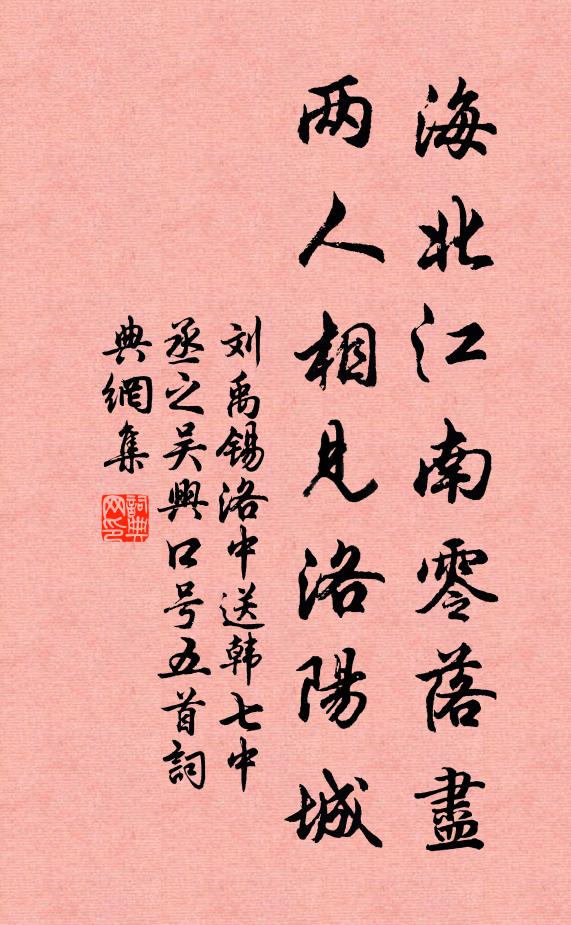 海北江南零落盡
两人相見洛陽城
刘禹锡洛中送韩七中
丞之吴興口号五首詞
典網集
詞典
网印